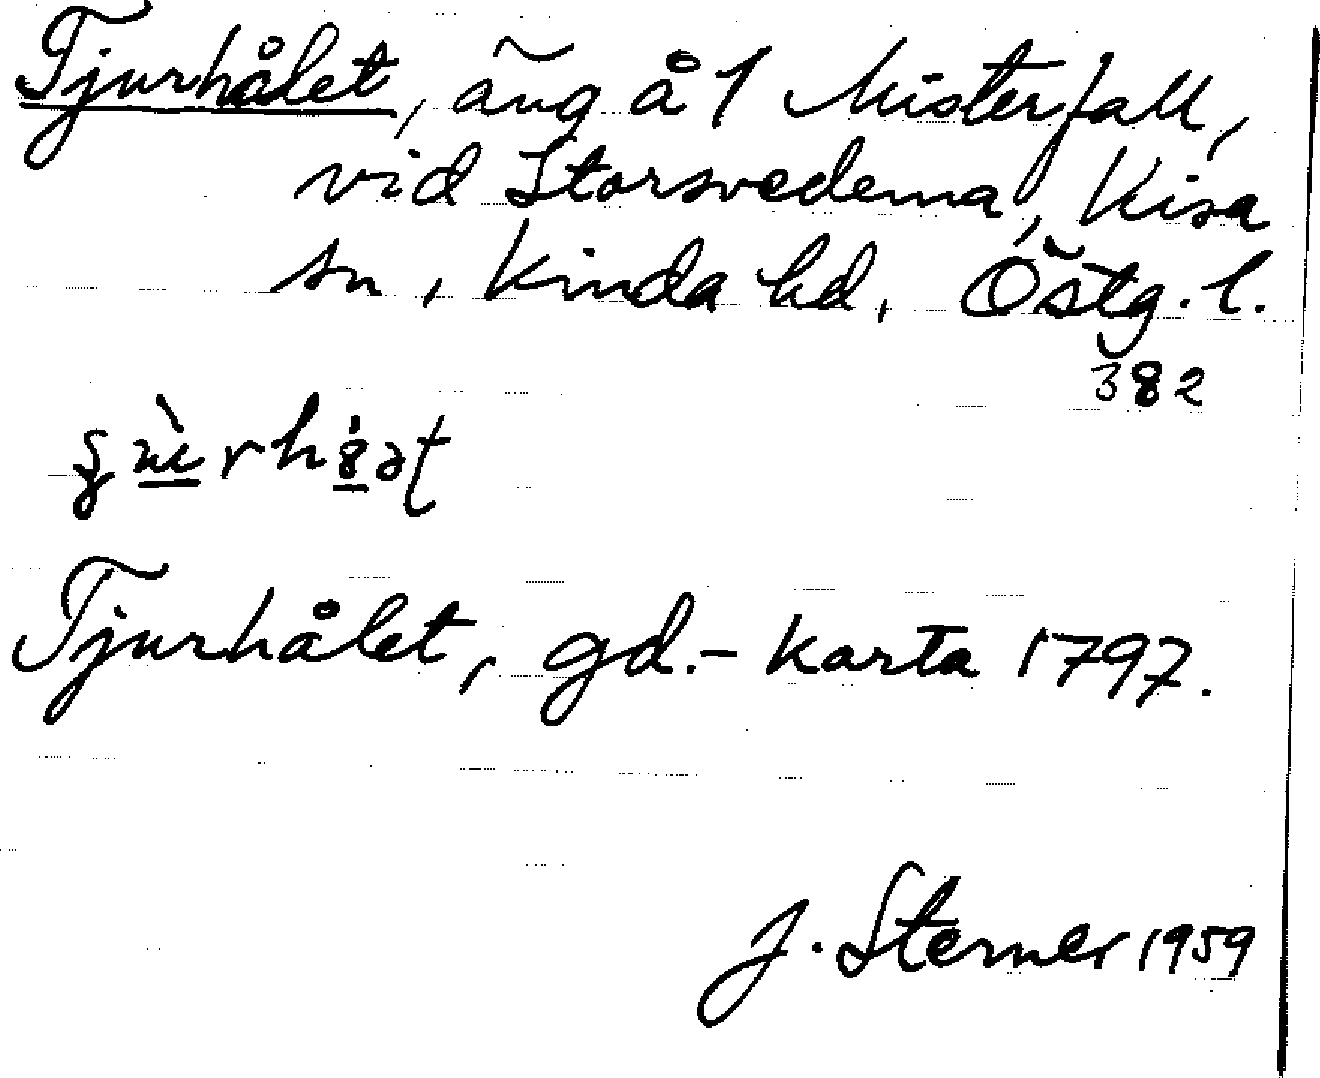 Tjurhålet, äng å 1 Misterfall,
vid Storsvederna, Kisa
sn, Kinda hd, Östg. l.
382
Tjurhålet, gd.- karta 1797.
J. Sterner 1959